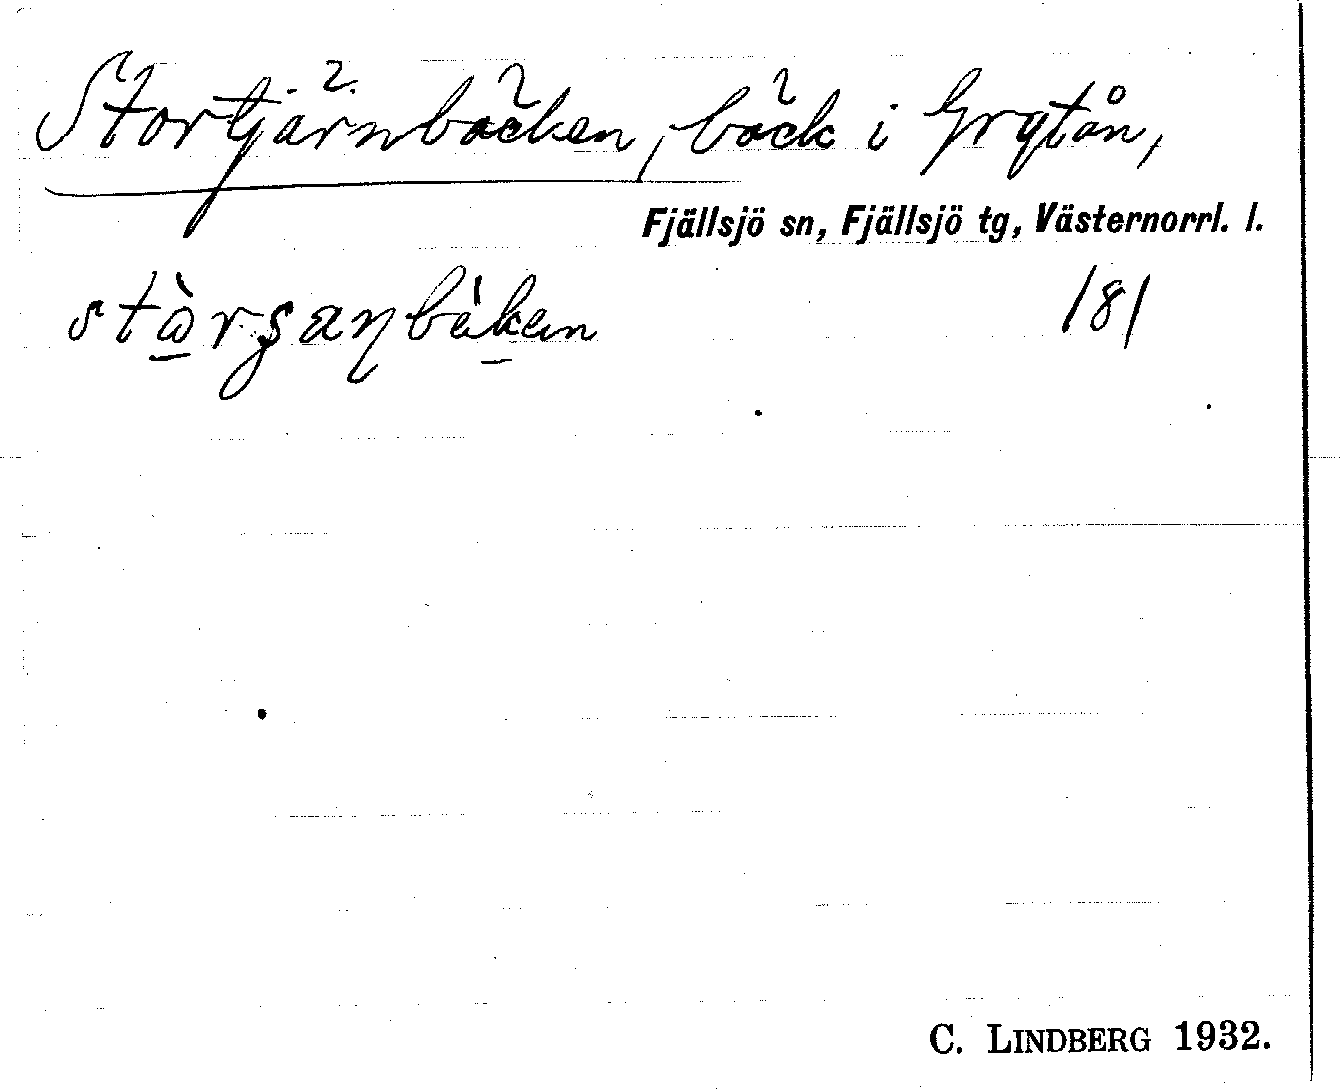 Stortjärnbäcken, bäck i Grytån,
Fjällsjö sn, Fjällsjö tg, Västernorrl. l.
181
C. LINDBERG 1932.